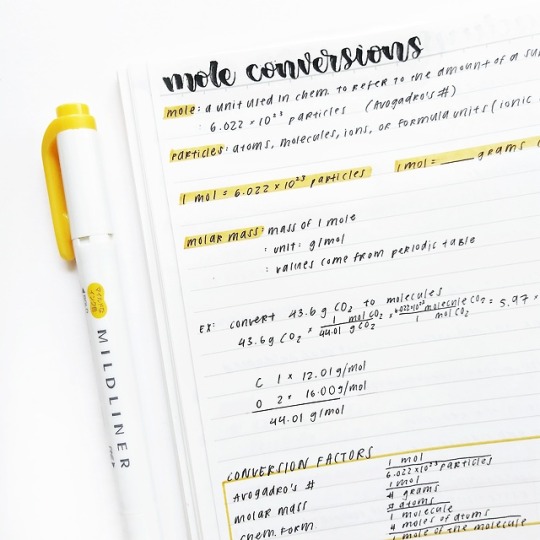 mole conversions
mole: a unit used in chem. to refer to the amount of a
: 6.022 × 10²³ particles (Avogadro's #)
particles: atoms, molecules, ions, or formula units (ionic
1 mol = 6.022 × 10²³ particles
1 mol = ____ grams
molar mass: mass of 1 mole
: unit: g/mol
: values come from periodic table
EX: convert 43.6g CO₂ to molecules
43.6g CO₂ × 1 mol CO₂ / 44.01 g CO₂ × 6.022×10²³ molecule CO₂ / 1 mol CO₂ = 5.97 ×
C 1 × 12.01 g/mol
O 2 × 16.00 g/mol
44.01 g/mol
CONVERSION FACTORS
Avogadro's # 1 mol / 6.022 × 10²³ particles
molar mass 1 mol / # grams
chem. form # atoms / 1 molecule
4 moles of atoms / 1 mole of the molecule
MILDLINER